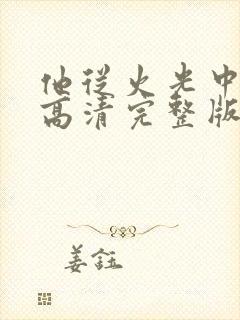 他从火光中
高清完整版
姜钰